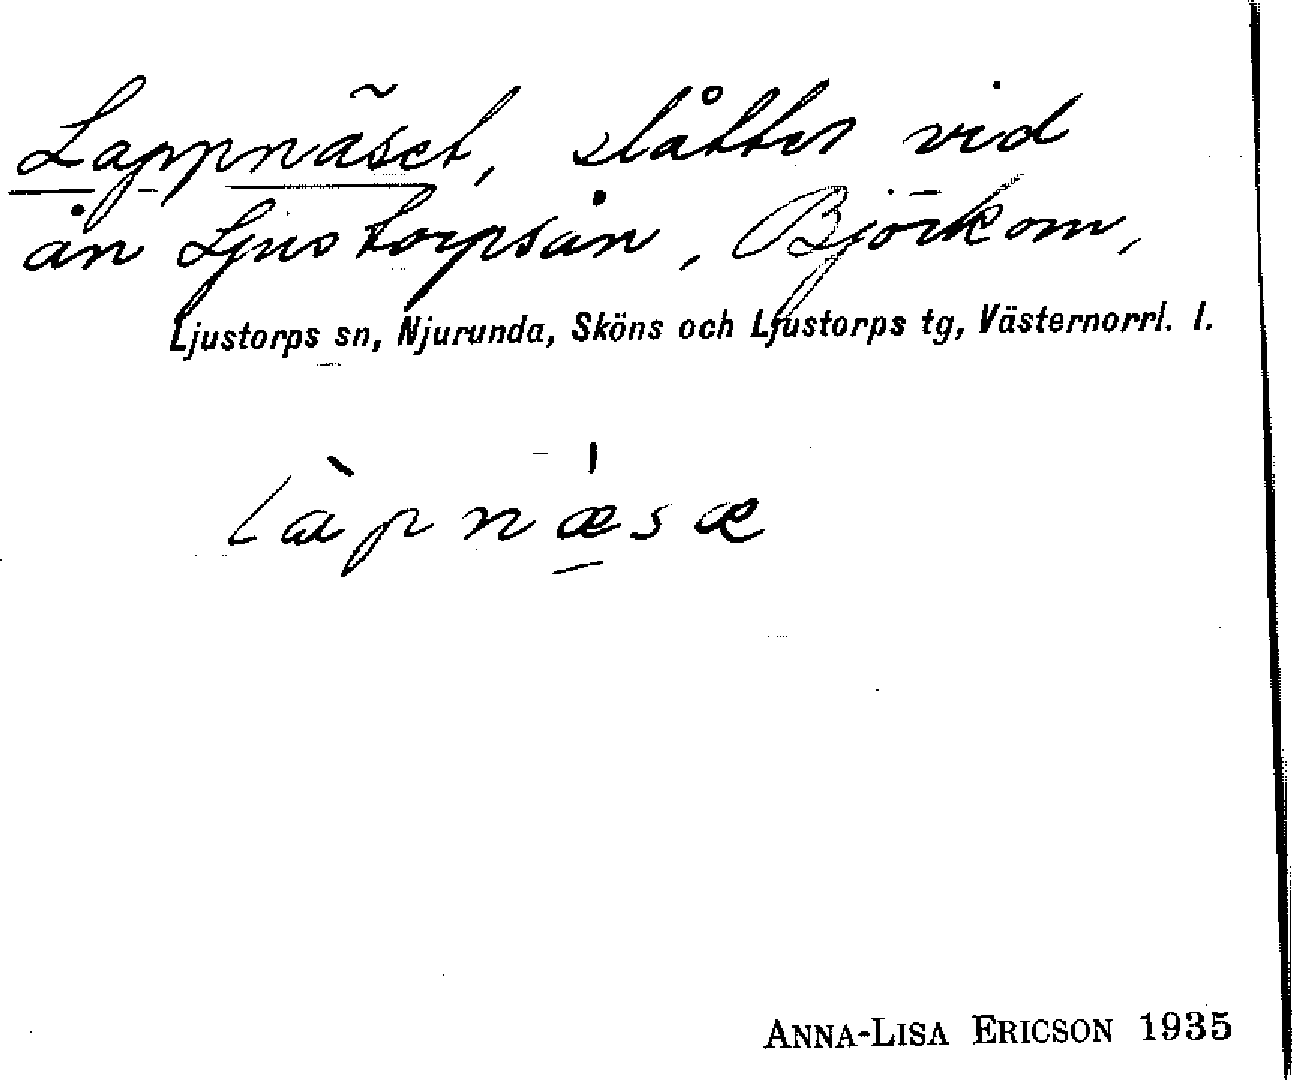 Lappnäset, slåtter vid
ån Ljustorpsån, Björkom,
Ljustorps sn, Njurunda, Sköns och Ljustorps tg, Västernorrl. l.
làpnæ̱ˈsæ
ANNA-LISA ERICSON 1935